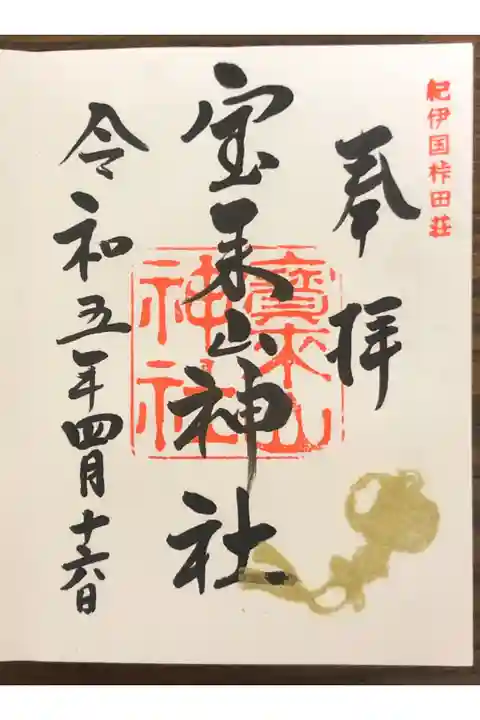 紀伊国桛田荘
奉拝
宝来山神社
寳来山
神社
令和五年四月十六日